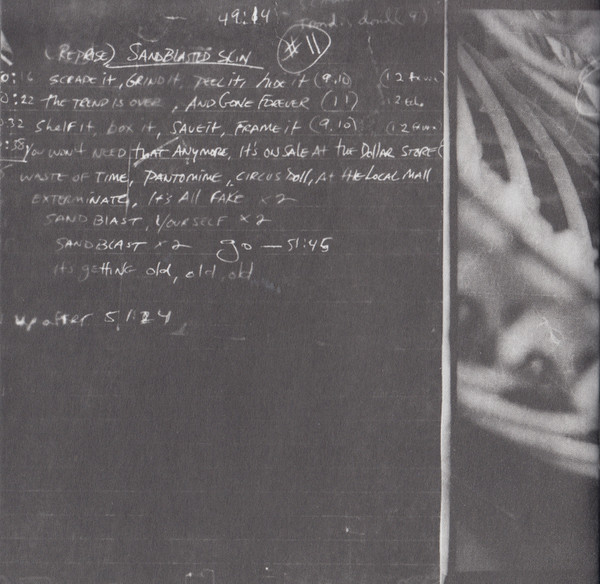 49:14
(Reprise) SANDBLASTED SKIN #11
0:16 SCRAPE it, GRIND it, PEEL it, hide it (9,10)
0:22 The TREND IS OVER, AND GONE FOREVER (11)
0:32 Shelf it, box it, SAVE it, FRAME it (9,10)
:38 YOU WON'T NEED that ANYMORE, It's ON SALE At the DOLLAR STORE
WASTE OF TIME, PANTOMIME, CIRCUS DOLL, At tHe LOCAL MALL
EXTERMINATE, It's All FAKE x2
SAND BLAST, YOURSELF x2
SANDBLAST x2 go — 51:45
it's getting old, old, old
up after 51:24